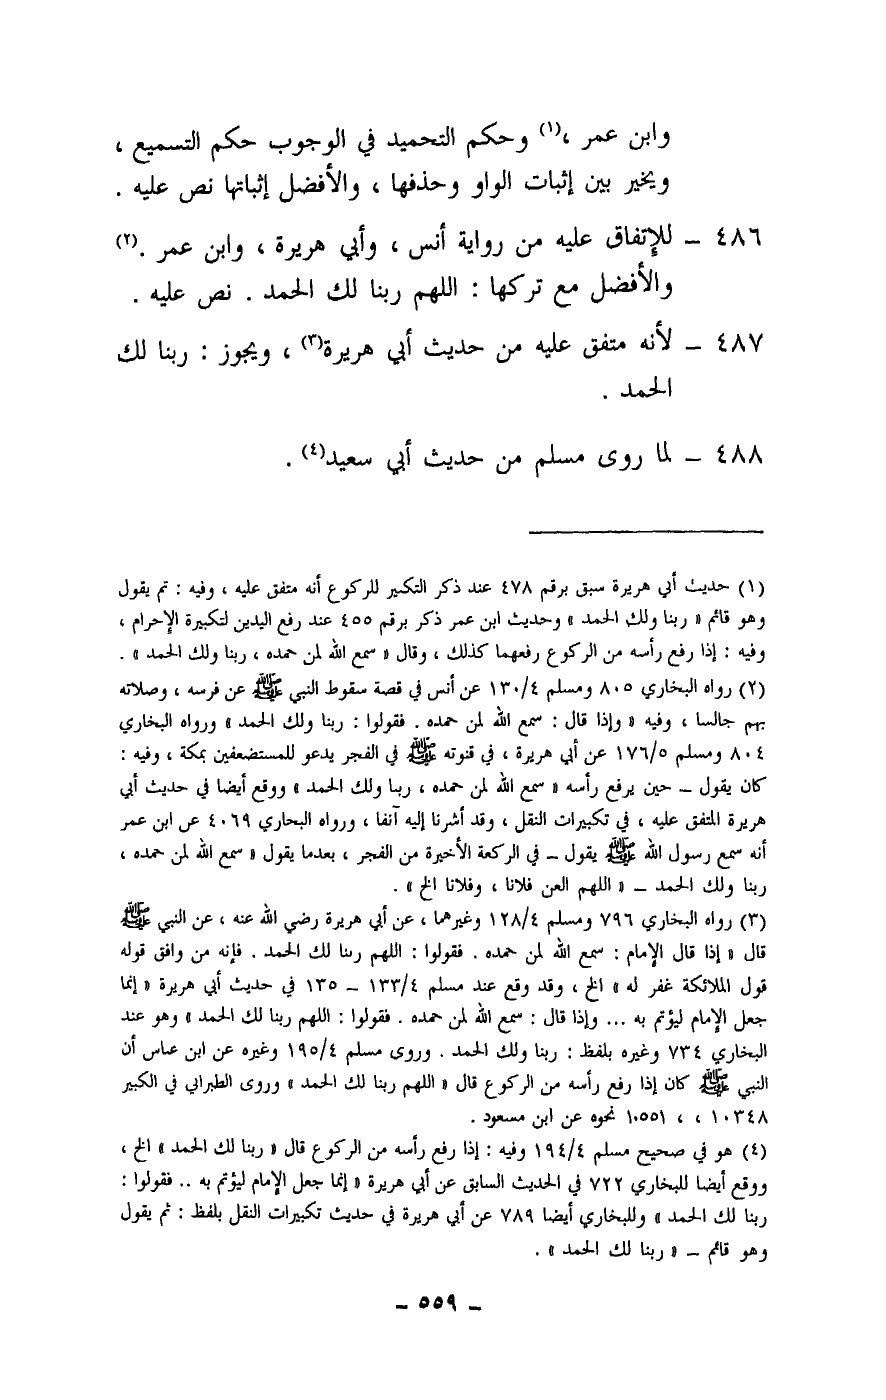 وابن عمر ،(١) وحكم التحميد في الوجوب حكم التسميع ،
ويخير بين إثبات الواو وحذفها ، والأفضل إثباتها نص عليه .
٤٨٦ – للإتفاق عليه من رواية أنس ، وأبي هريرة ، وابن عمر .(٢)
والأفضل مع تركها : اللهم ربنا لك الحمد . نص عليه .
٤٨٧ – لأنه متفق عليه من حديث أبي هريرة(٣) ، ويجوز : ربنا لك
الحمد .
٤٨٨ – لما روى مسلم من حديث أبي سعيد(٤) .
(١) حديث أبي هريرة سبق برقم ٤٧٨ عند ذكر التكبير للركوع أنه متفق عليه ، وفيه : ثم يقول
وهو قائم « ربنا ولك الحمد » وحديث ابن عمر ذكر برقم ٤٥٥ عند رفع اليدين لتكبيرة الإحرام ،
وفيه : إذا رفع رأسه من الركوع رفعهما كذلك ، وقال « سمع الله لمن حمده ، ربنا ولك الحمد » .
(٢) رواه البخاري ٨٠٥ ومسلم ١٣٠/٤ عن أنس في قصة سقوط النبي ﷺ عن فرسه ، وصلاته
بهم جالسا ، وفيه « وإذا قال : سمع الله لمن حمده . فقولوا : ربنا ولك الحمد » ورواه البخاري
٨٠٤ ومسلم ١٧٦/٥ عن أبي هريرة ، في قنوته ﷺ في الفجر يدعو للمستضعفين بمكة ، وفيه :
كان يقول – حين يرفع رأسه « سمع الله لمن حمده ، ربنا ولك الحمد » ووقع أيضا في حديث أبي
هريرة المتفق عليه ، في تكبيرات النقل ، وقد أشرنا إليه آنفا ، ورواه البخاري ٤٠٦٩ عن ابن عمر
أنه سمع رسول الله ﷺ يقول – في الركعة الأخيرة من الفجر ، بعدما يقول « سمع الله لمن حمده ،
ربنا ولك الحمد – « اللهم العن فلانا ، وفلانا الخ » .
(٣) رواه البخاري ٧٩٦ ومسلم ١٢٨/٤ وغيرهما ، عن أبي هريرة رضي الله عنه ، عن النبي ﷺ
قال « إذا قال الإمام : سمع الله لمن حمده . فقولوا : اللهم ربنا لك الحمد . فإنه من وافق قوله
قول الملائكة غفر له » الخ ، وقد وقع عند مسلم ١٣٣/٤ – ١٣٥ في حديث أبي هريرة « إنما
جعل الإمام ليؤتم به ... وإذا قال : سمع الله لمن حمده . فقولوا : اللهم ربنا لك الحمد » وهو عند
البخاري ٧٣٤ وغيره بلفظ : ربنا ولك الحمد . وروى مسلم ١٩٥/٤ وغيره عن ابن عباس أن
النبي ﷺ كان إذا رفع رأسه من الركوع قال « اللهم ربنا لك الحمد » وروى الطبراني في الكبير
١٠٣٤٨ ، ، ١٠٥٥١ نحوه عن ابن مسعود .
(٤) هو في صحيح مسلم ١٩٤/٤ وفيه : إذا رفع رأسه من الركوع قال « ربنا لك الحمد » الخ ،
ووقع أيضا للبخاري ٧٢٢ في الحديث السابق عن أبي هريرة « إنما جعل الإمام ليؤتم به .. فقولوا :
ربنا لك الحمد » وللبخاري أيضا ٧٨٩ عن أبي هريرة في حديث تكبيرات النقل بلفظ : ثم يقول
وهو قائم – « ربنا لك الحمد » .
– ٥٥٩ –